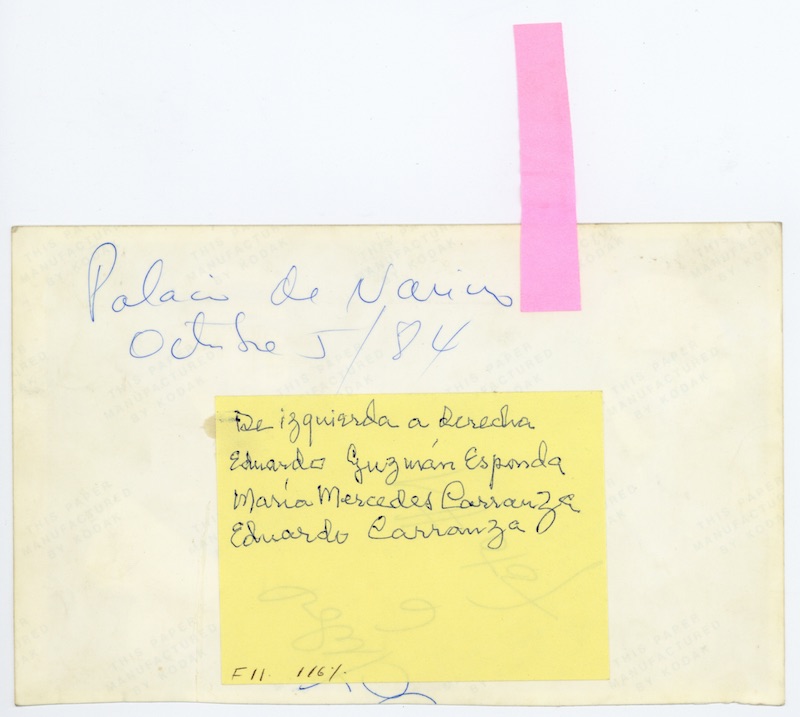 Palacio de Narino
Octubre 5/84
De izquierda a derecha
Eduardo Guzmán Esponda
María Mercedes Carranza
Eduardo Carranza
F11. 116%.
THIS PAPER
MANUFACTURED
BY KODAK